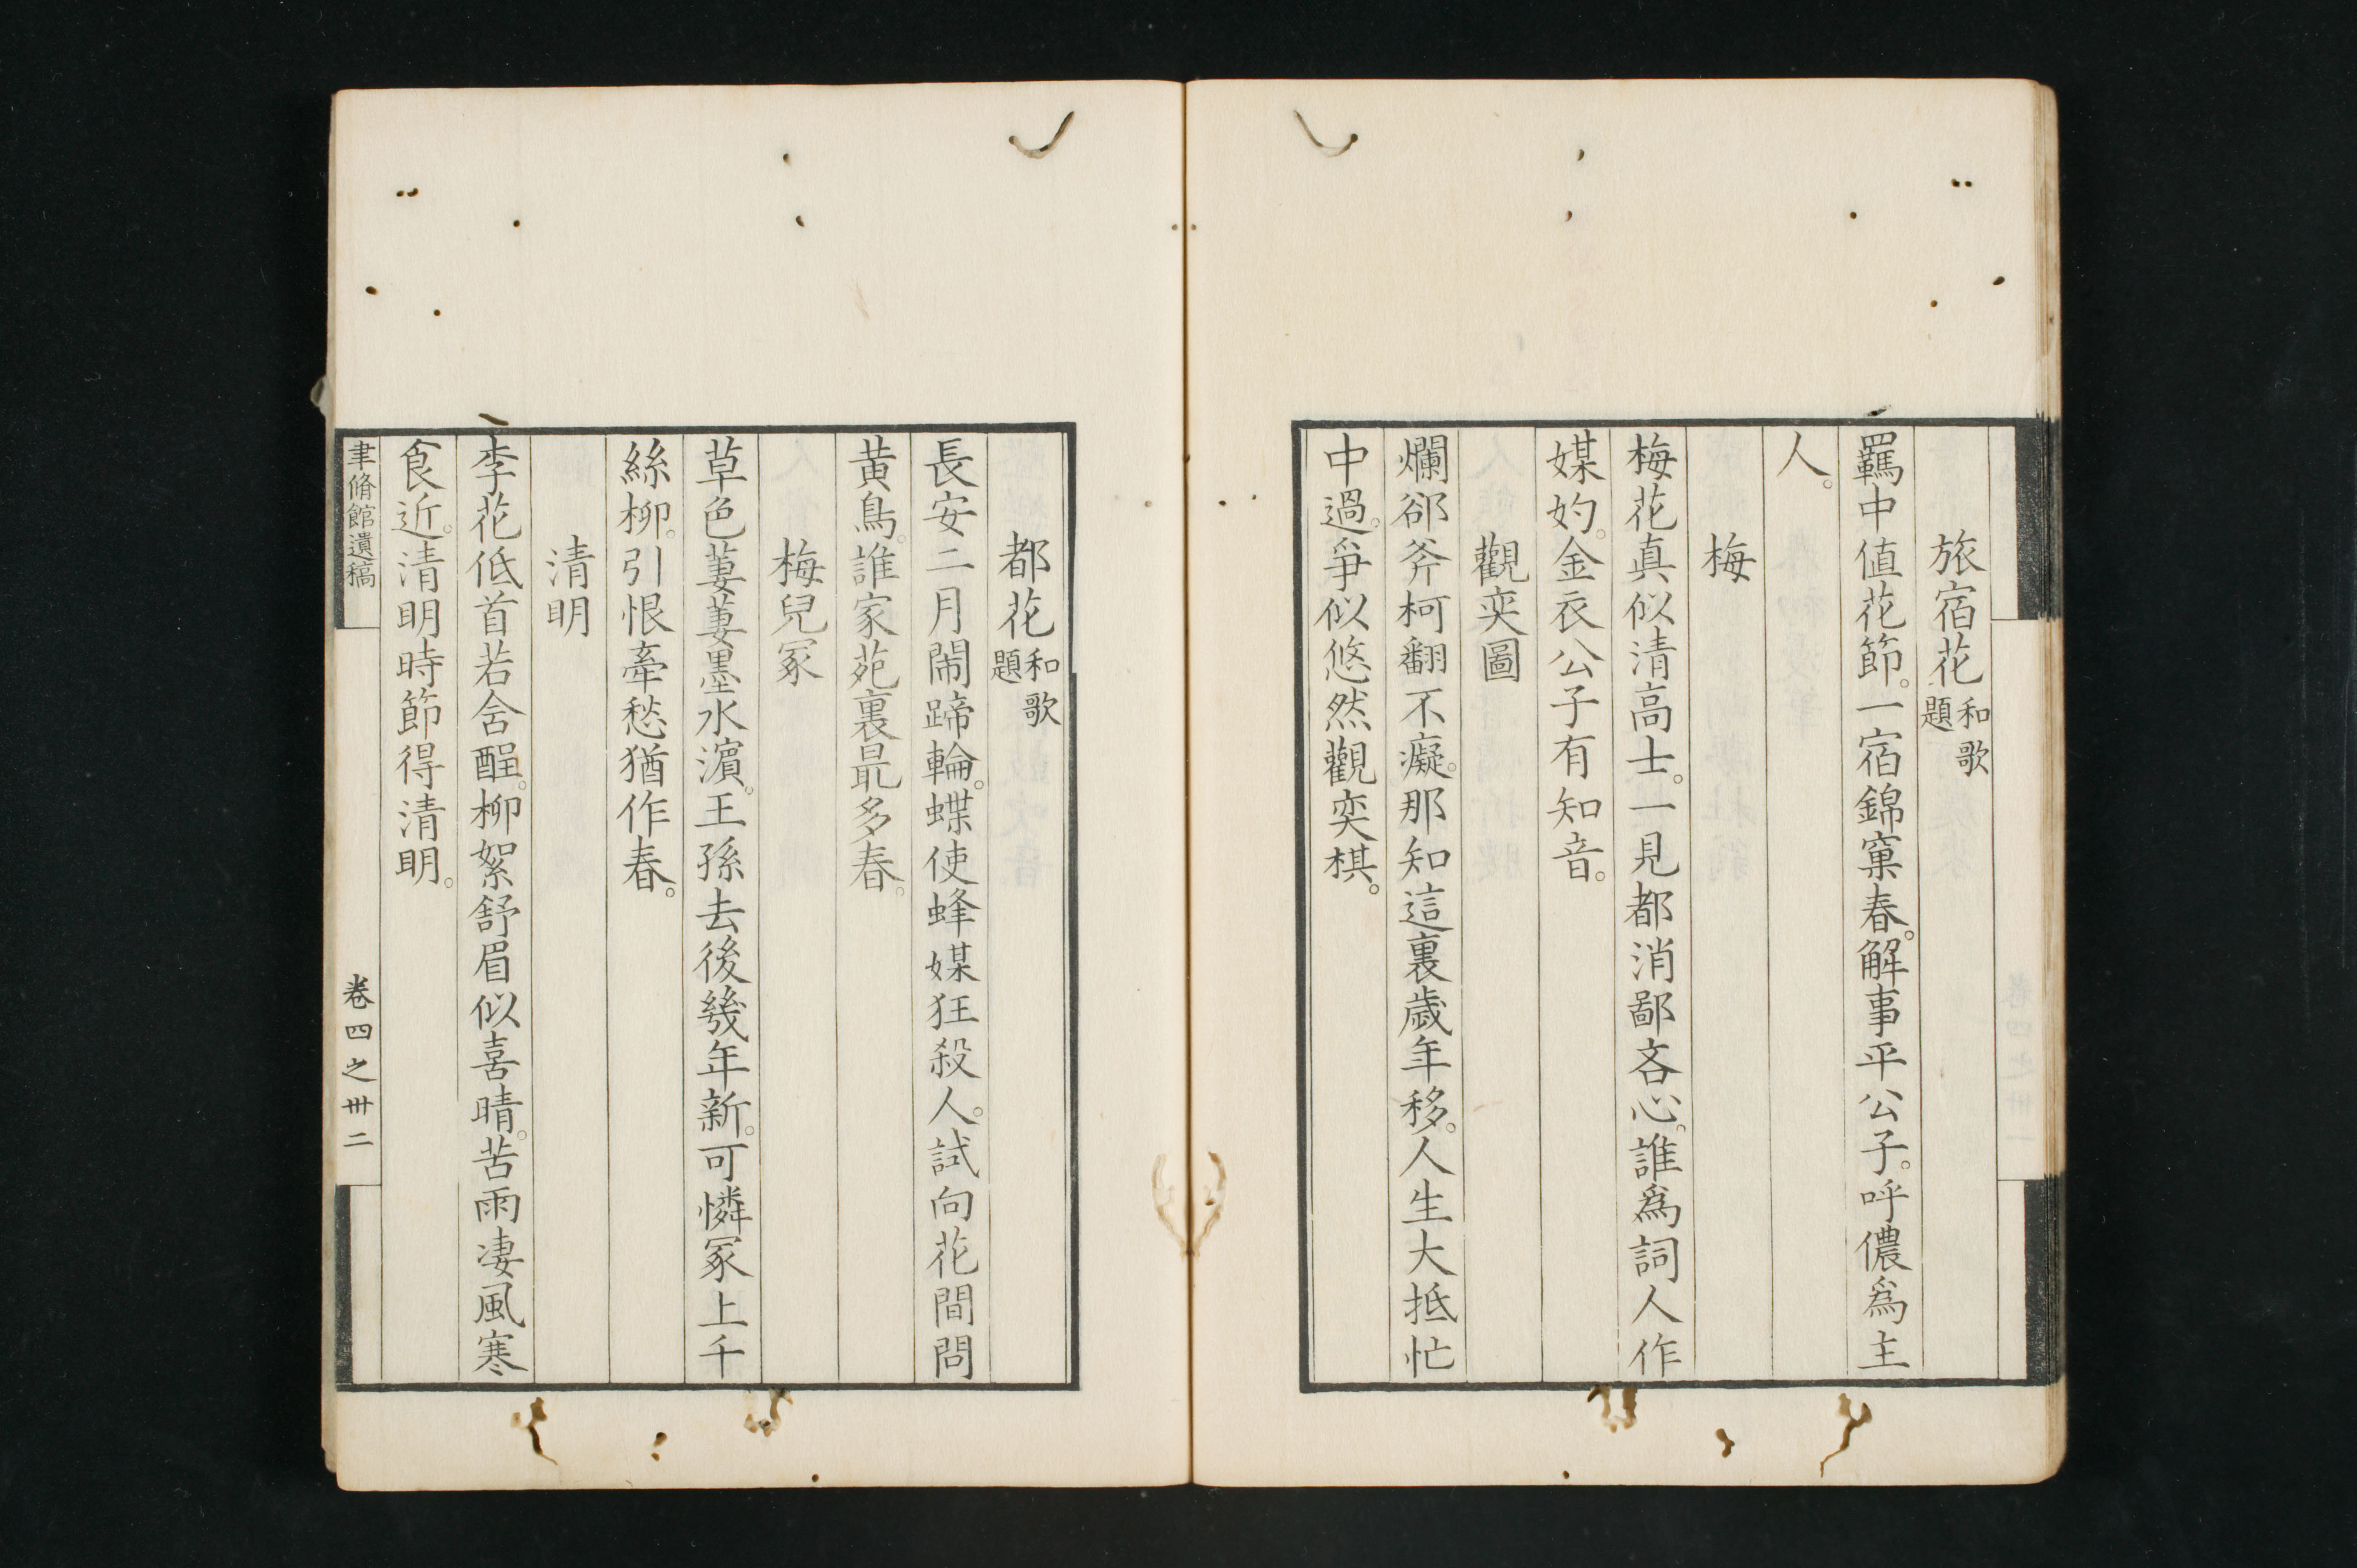 旅宿花和歌題
羈中値花節。一宿錦窠春。解事平公子。呼儂爲主
人。
梅
梅花真似清高士。一見都消鄙吝心。誰爲詞人作
媒妁。金衣公子有知音。
觀奕圖
爛郤斧柯翻不癡。那知這裏歳年移。人生大抵忙
中過。爭似悠然觀奕棋。
都花和歌題
長安二月閙蹄輪。蝶使蜂媒狂殺人。試向花間問
黄鳥。誰家苑裏最多春。
梅兒冢
草色萋萋墨水濵。王孫去後幾年新。可憐冢上千
絲柳。引恨牽愁猶作春。
清明
李花低首若含酲。柳絮舒眉似喜晴。苦雨凄風寒
食近。清明時節得清明。
聿脩館遺稿
卷四之卅二